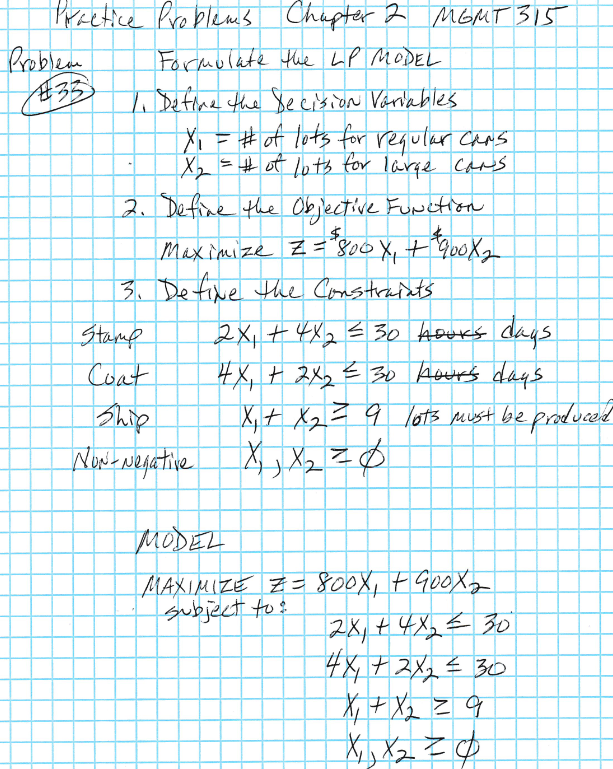 Practice Problems Chapter 2 MGMT 315
Problem Formulate the LP MODEL
#33 1. Define the Decision Variables
X₁ = # of lots for regular cans
X₂ = # of lots for large cans
2. Define the Objective Function
Maximize Z = $800 X₁ + $900X₂
3. Define the Constraints
Stamp 2X₁ + 4X₂ ≤ 30 hours days
Coat 4X₁ + 2X₂ ≤ 30 hours days
Ship X₁ + X₂ ≥ 9 lots must be produced
Non-negative X₁, X₂ ≥ ∅
MODEL
MAXIMIZE Z = 800X₁ + 900X₂
subject to:
2X₁ + 4X₂ ≤ 30
4X₁ + 2X₂ ≤ 30
X₁ + X₂ ≥ 9
X₁, X₂ ≥ ∅